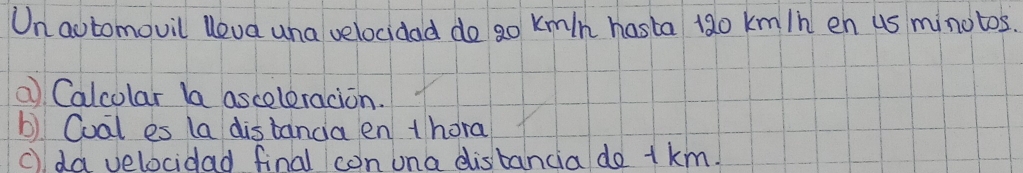 Un automovil lleva una velocidad de 20 km/h hasta 120 km/h en 45 minutos.
a) Calcular la asceleración.
b) Cuál es la distancia en 1 hora
c) La velocidad final con una distancia de 1 km.